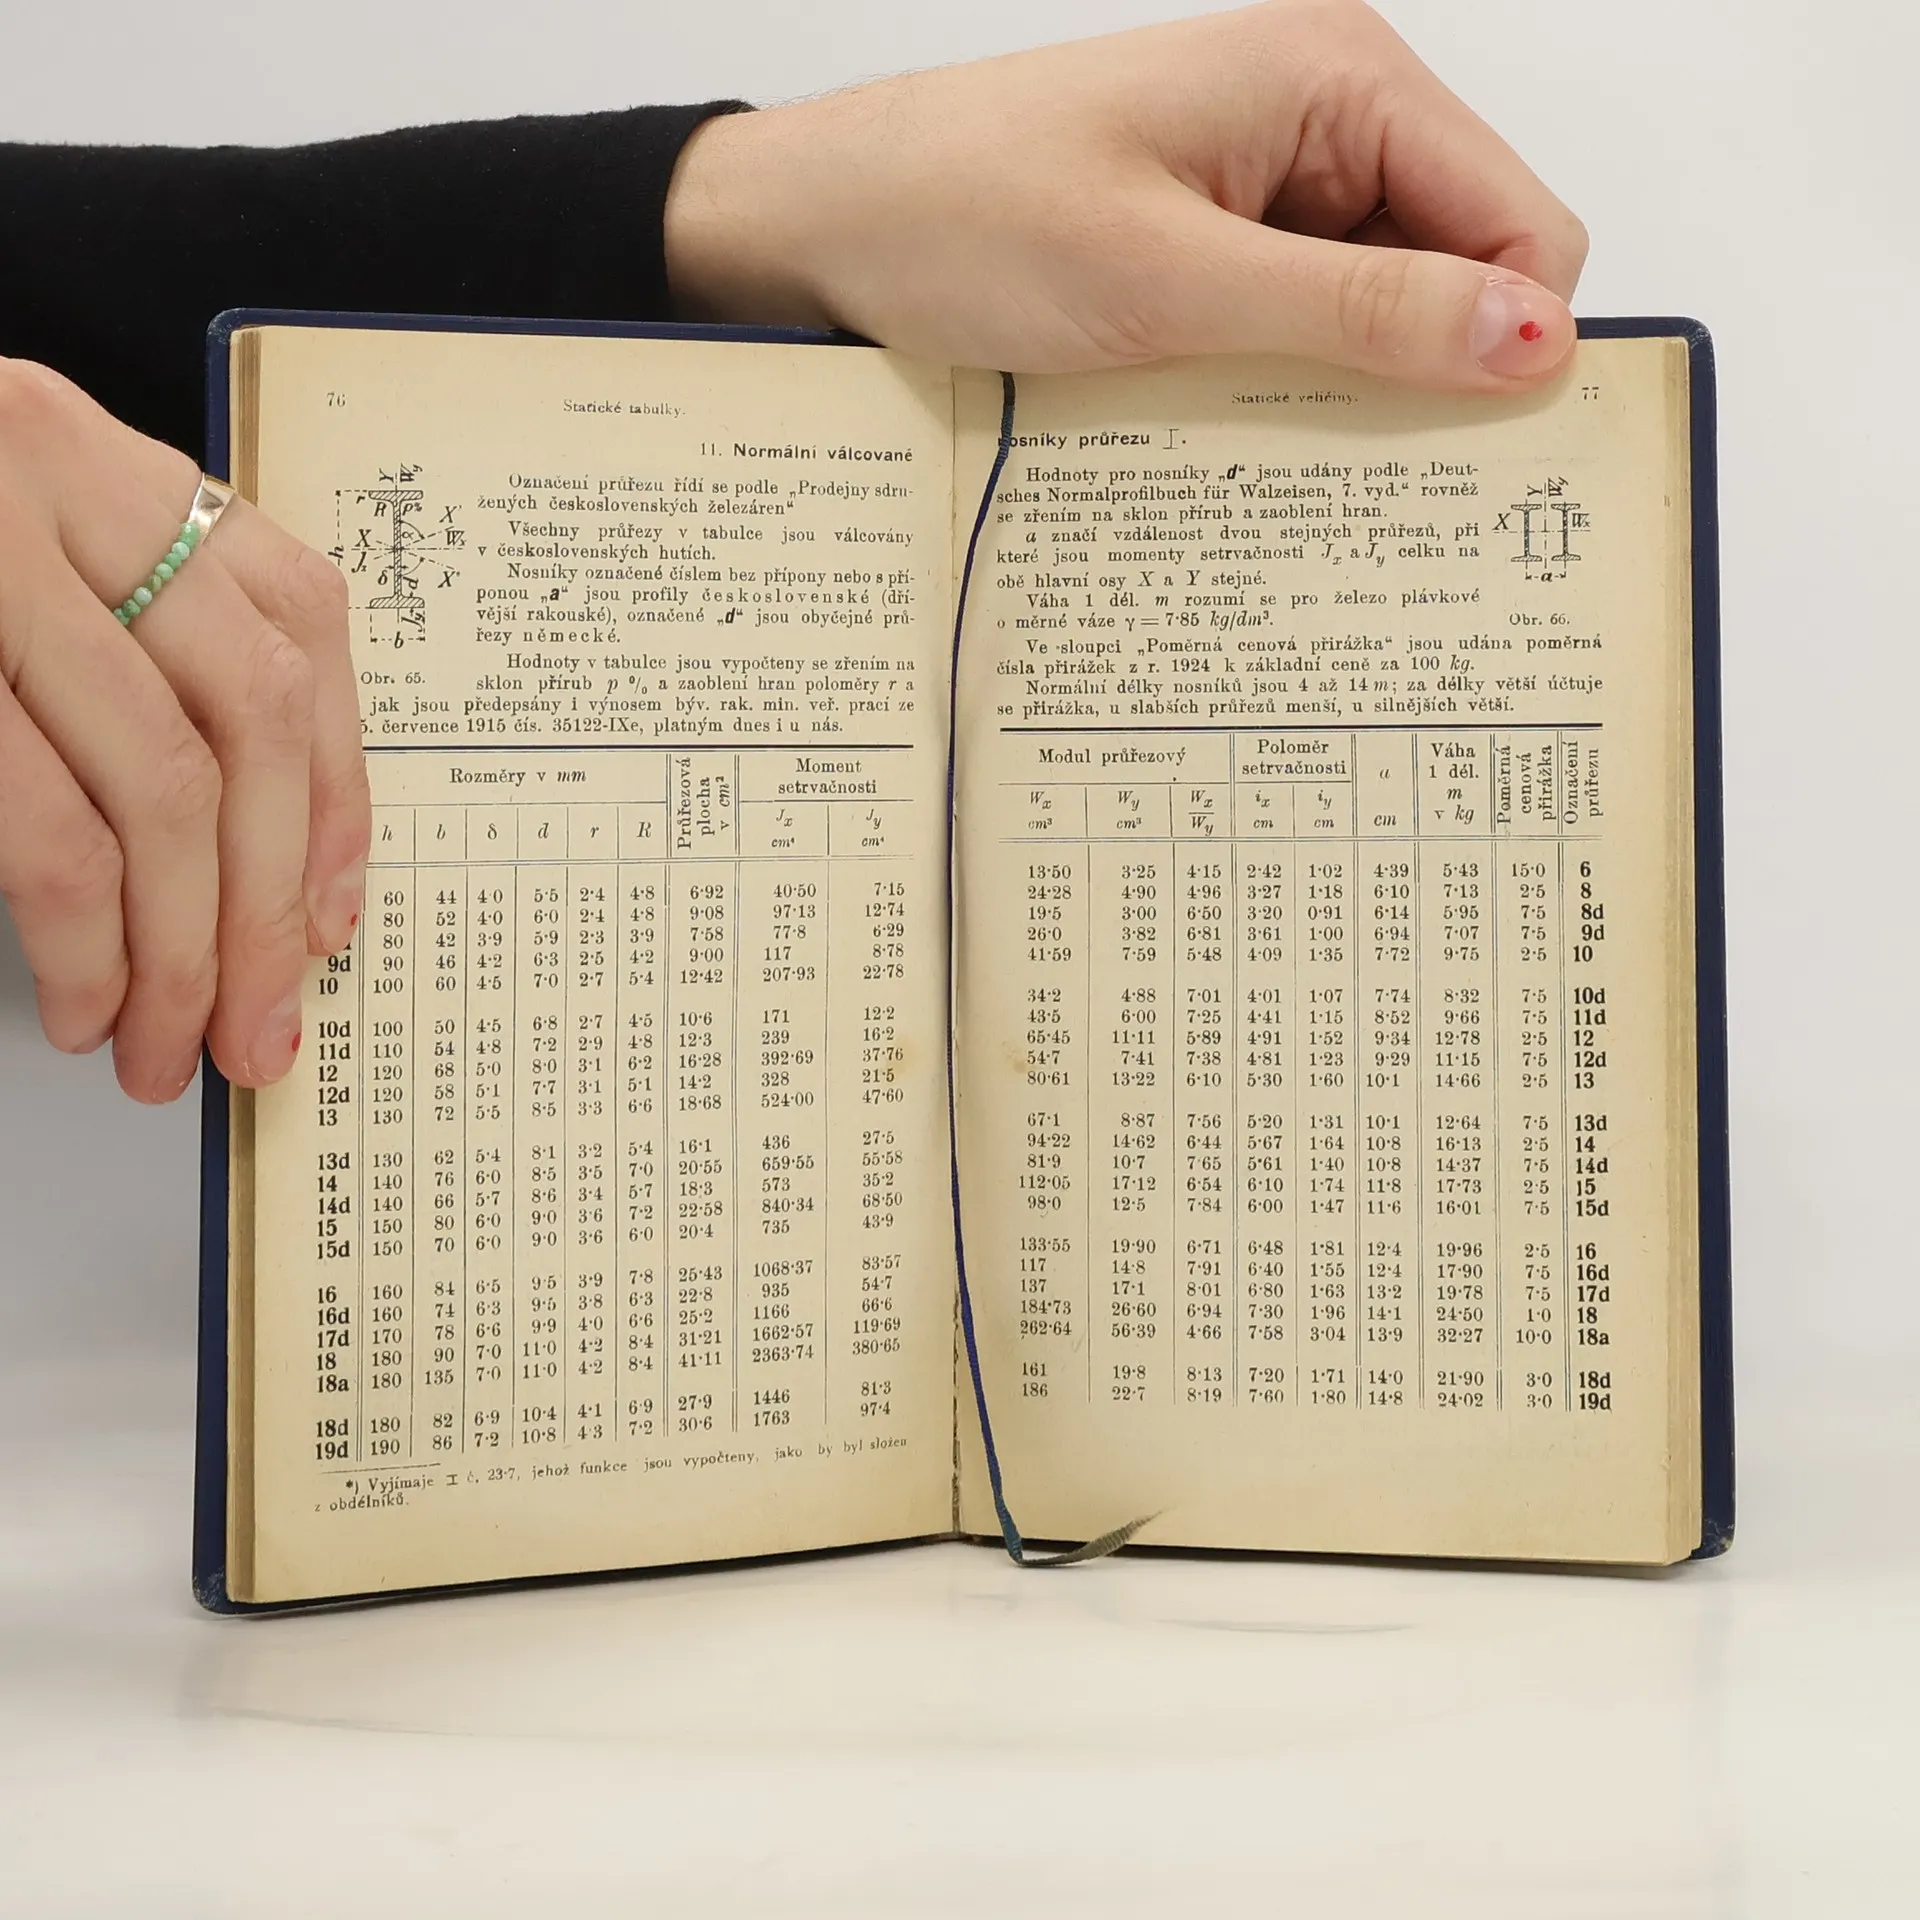 76
Statické tabulky.
11. Normální válcované
Označení průřezu řídí se podle „Prodejny sdru-
žených československých železáren“
Všechny průřezy v tabulce jsou válcovány
v československých hutích.
Nosníky označené číslem bez přípony nebo s pří-
ponou „a“ jsou profily československé (dří-
vější rakouské), označené „d“ jsou obyčejné prů-
řezy německé.
Hodnoty v tabulce jsou vypočteny se zřením na
Obr. 65.
sklon přírub p % a zaoblení hran poloměry r a
jak jsou předepsány i výnosem býv. rak. min. veř. prací ze
5. července 1915 čís. 35122-IXe, platným dnes i u nás.
Rozměry v mm
Průřezová plocha v cm²
Moment setrvačnosti
h b δ d r R Jx cm⁴ Jy cm⁴
60 44 4·0 5·5 2·4 4·8 6·92 40·50 7·15
80 52 4·0 6·0 2·4 4·8 9·08 97·13 12·74
80 42 3·9 5·9 2·3 3·9 7·58 77·8 6·29
9d 90 46 4·2 6·3 2·5 4·2 9·00 117 8·78
10 100 60 4·5 7·0 2·7 5·4 12·42 207·93 22·78
10d 100 50 4·5 6·8 2·7 4·5 10·6 171 12·2
11d 110 54 4·8 7·2 2·9 4·8 12·3 239 16·2
12 120 68 5·0 8·0 3·1 6·2 16·28 392·69 37·76
12d 120 58 5·1 7·7 3·1 5·1 14·2 328 21·5
13 130 72 5·5 8·5 3·3 6·6 18·68 524·00 47·60
13d 130 62 5·4 8·1 3·2 5·4 16·1 436 27·5
14 140 76 6·0 8·5 3·5 7·0 20·55 659·55 55·58
14d 140 66 5·7 8·6 3·4 5·7 18·3 573 35·2
15 150 80 6·0 9·0 3·6 7·2 22·58 840·34 68·50
15d 150 70 6·0 9·0 3·6 6·0 20·4 735 43·9
16 160 84 6·5 9·5 3·9 7·8 25·43 1068·37 83·57
16d 160 74 6·3 9·5 3·8 6·3 22·8 935 54·7
17d 170 78 6·6 9·9 4·0 6·6 25·2 1166 66·6
18 180 90 7·0 11·0 4·2 8·4 31·21 1662·57 119·69
18a 180 135 7·0 11·0 4·2 8·4 41·11 2363·74 380·65
18d 180 82 6·9 10·4 4·1 6·9 27·9 1446 81·3
19d 190 86 7·2 10·8 4·3 7·2 30·6 1763 97·4
*) Vyjímaje I č. 23·7, jehož funkce jsou vypočteny, jako by byl složen
z obdélníků.
Statické veličiny.
77
nosníky průřezu I.
Hodnoty pro nosníky „d“ jsou udány podle „Deut-
sches Normalprofilbuch für Walzeisen, 7. vyd.“ rovněž
se zřením na sklon přírub a zaoblení hran.
a značí vzdálenost dvou stejných průřezů, při
které jsou momenty setrvačnosti Jx a Jy celku na
obě hlavní osy X a Y stejné.
Váha 1 dél. m rozumí se pro železo plávkové
o měrné váze γ = 7·85 kg/dm³.
Obr. 66.
Ve sloupci „Poměrná cenová přirážka“ jsou udána poměrná
čísla přirážek z r. 1924 k základní ceně za 100 kg.
Normální délky nosníků jsou 4 až 14 m; za délky větší účtuje
se přirážka, u slabších průřezů menší, u silnějších větší.
Modul průřezový
Poloměr setrvačnosti
a cm
Váha 1 dél. m v kg
Poměrná cenová přirážka
Označení průřezu
Wx cm³ Wy cm³ Wx/Wy ix cm iy cm
13·50 3·25 4·15 2·42 1·02 4·39 5·43 15·0 6
24·28 4·90 4·96 3·27 1·18 6·10 7·13 2·5 8
19·5 3·00 6·50 3·20 0·91 6·14 5·95 7·5 8d
26·0 3·82 6·81 3·61 1·00 6·94 7·07 7·5 9d
41·59 7·59 5·48 4·09 1·35 7·72 9·75 2·5 10
34·2 4·88 7·01 4·01 1·07 7·74 8·32 7·5 10d
43·5 6·00 7·25 4·41 1·15 8·52 9·66 7·5 11d
65·45 11·11 5·89 4·91 1·52 9·34 12·78 2·5 12
54·7 7·41 7·38 4·81 1·23 9·29 11·15 7·5 12d
80·61 13·22 6·10 5·30 1·60 10·1 14·66 2·5 13
67·1 8·87 7·56 5·20 1·31 10·1 12·64 7·5 13d
94·22 14·62 6·44 5·67 1·64 10·8 16·13 2·5 14
81·9 10·7 7·65 5·61 1·40 10·8 14·37 7·5 14d
112·05 17·12 6·54 6·10 1·74 11·8 17·73 2·5 15
98·0 12·5 7·84 6·00 1·47 11·6 16·01 7·5 15d
133·55 19·90 6·71 6·48 1·81 12·4 19·96 2·5 16
117 14·8 7·91 6·40 1·55 12·4 17·90 7·5 16d
137 17·1 8·01 6·80 1·63 13·2 19·78 7·5 17d
184·73 26·60 6·94 7·30 1·96 14·1 24·50 1·0 18
262·64 56·39 4·66 7·58 3·04 13·9 32·27 10·0 18a
161 19·8 8·13 7·20 1·71 14·0 21·90 3·0 18d
186 22·7 8·19 7·60 1·80 14·8 24·02 3·0 19d